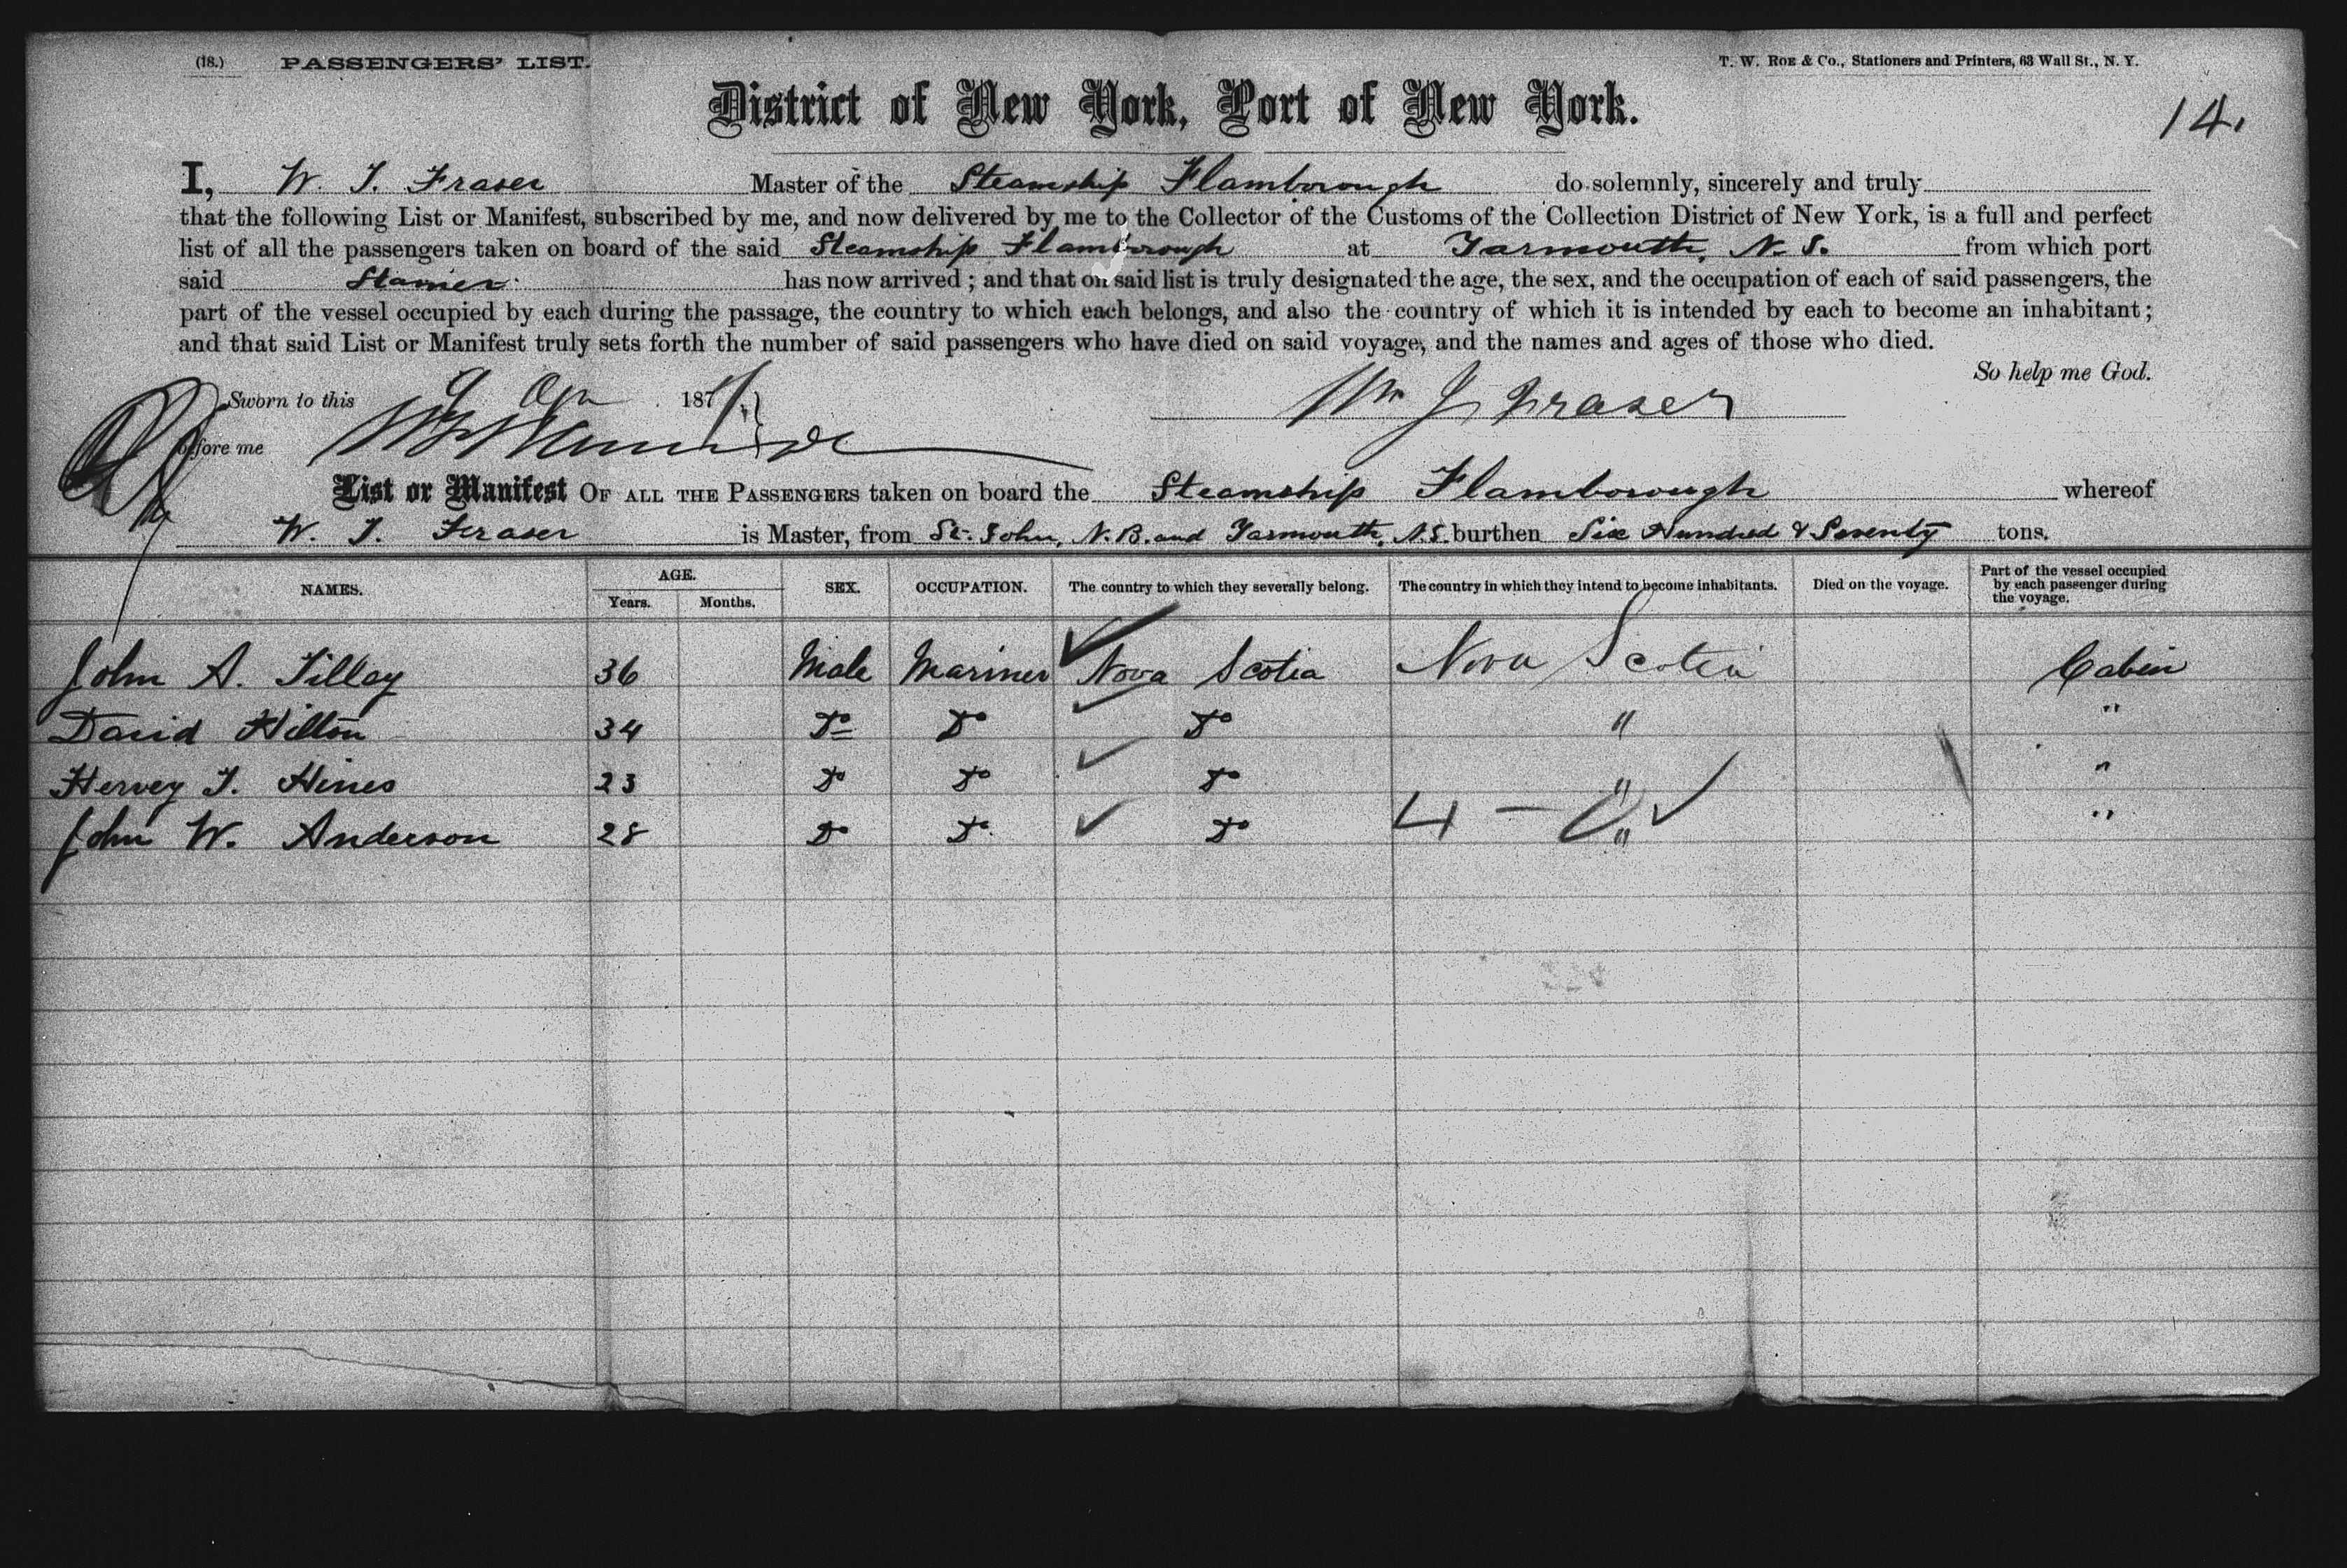 (18.) PASSENGERS' LIST. T. W. ROE & Co., Stationers and Printers, 63 Wall St., N. Y.
District of New York, Port of New York.
14.
I, W. J. Fraser Master of the Steamship Flamborough do solemnly, sincerely and truly
that the following List or Manifest, subscribed by me, and now delivered by me to the Collector of the Customs of the Collection District of New York, is a full and perfect
list of all the passengers taken on board of the said Steamship Flamborough at Yarmouth, N. S. from which port
said has now arrived; and that on said list is truly designated the age, the sex, and the occupation of each of said passengers, the
part of the vessel occupied by each during the passage, the country to which each belongs, and also the country of which it is intended by each to become an inhabitant;
and that said List or Manifest truly sets forth the number of said passengers who have died on said voyage, and the names and ages of those who died.
So help me God.
Sworn to this 9 187 Wm J Fraser
before me
List or Manifest OF ALL THE PASSENGERS taken on board the Steamship Flamborough whereof
W. J. Fraser is Master, from St. John, N. B. and Yarmouth, N. S. burthen Six Hundred & Seventy tons.
NAMES. AGE. Years. Months. SEX. OCCUPATION. The country to which they severally belong. The country in which they intend to become inhabitants. Died on the voyage. Part of the vessel occupied by each passenger during the voyage.
John A. Tilley 36 Male Mariner Nova Scotia Nova Scotia Cabin
David Hilton 34 Do Do Do " "
Hervey J. Hines 23 Do Do Do " "
John W. Anderson 28 Do Do Do " "
4 -